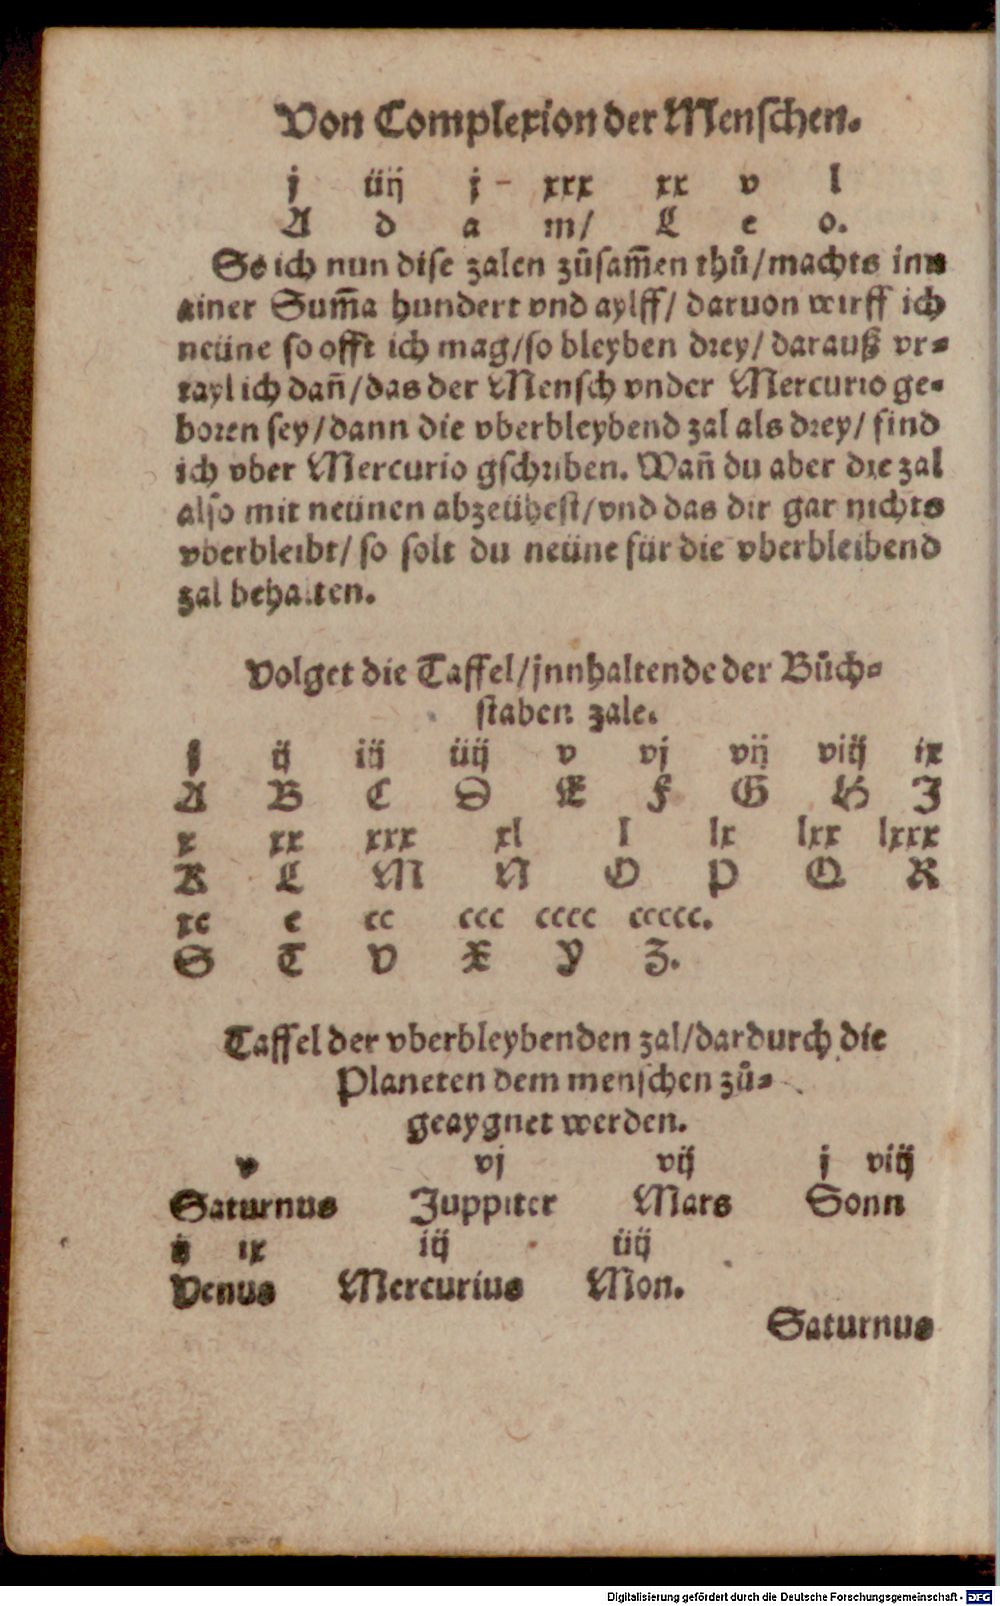 Von Complexion der Menschen.
j iiij j xxx xx v l
A d a m/ L e o.
So ich nun dise zalen zůsam̃en thů/machts inn
ainer Sum̃a hundert vnd aylff/ daruon wirff ich
neüne so offt ich mag/so bleyben drey/ darauß vr-
tayl ich dañ/das der Mensch vnder Mercurio ge-
boren sey/dann die vberbleybend zal als drey/ find
ich vber Mercurio gschriben. Wañ du aber die zal
also mit neünen abzeühest/vnd das dir gar nichts
vberbleibt/ so solt du neüne für die vberbleibend
zal behalten.
Volget die Taffel/jnnhaltende der Bůch-
staben zale.
j ij iij iiij v vj vij viij ix
A B C D E F G H J
x xx xxx xl l lx lxx lxxx
K L M N O P Q R
xc c cc ccc cccc ccccc.
S T V X Y Z.
Taffel der vberbleybenden zal/dardurch die
Planeten dem menschen zů-
geaygnet werden.
v vj vij j viij
Saturnus Juppiter Mars Sonn
ij ix iij iiij
Venus Mercurius Mon.
Saturnus
Digitalisierung gefördert durch die Deutsche Forschungsgemeinschaft - DFG